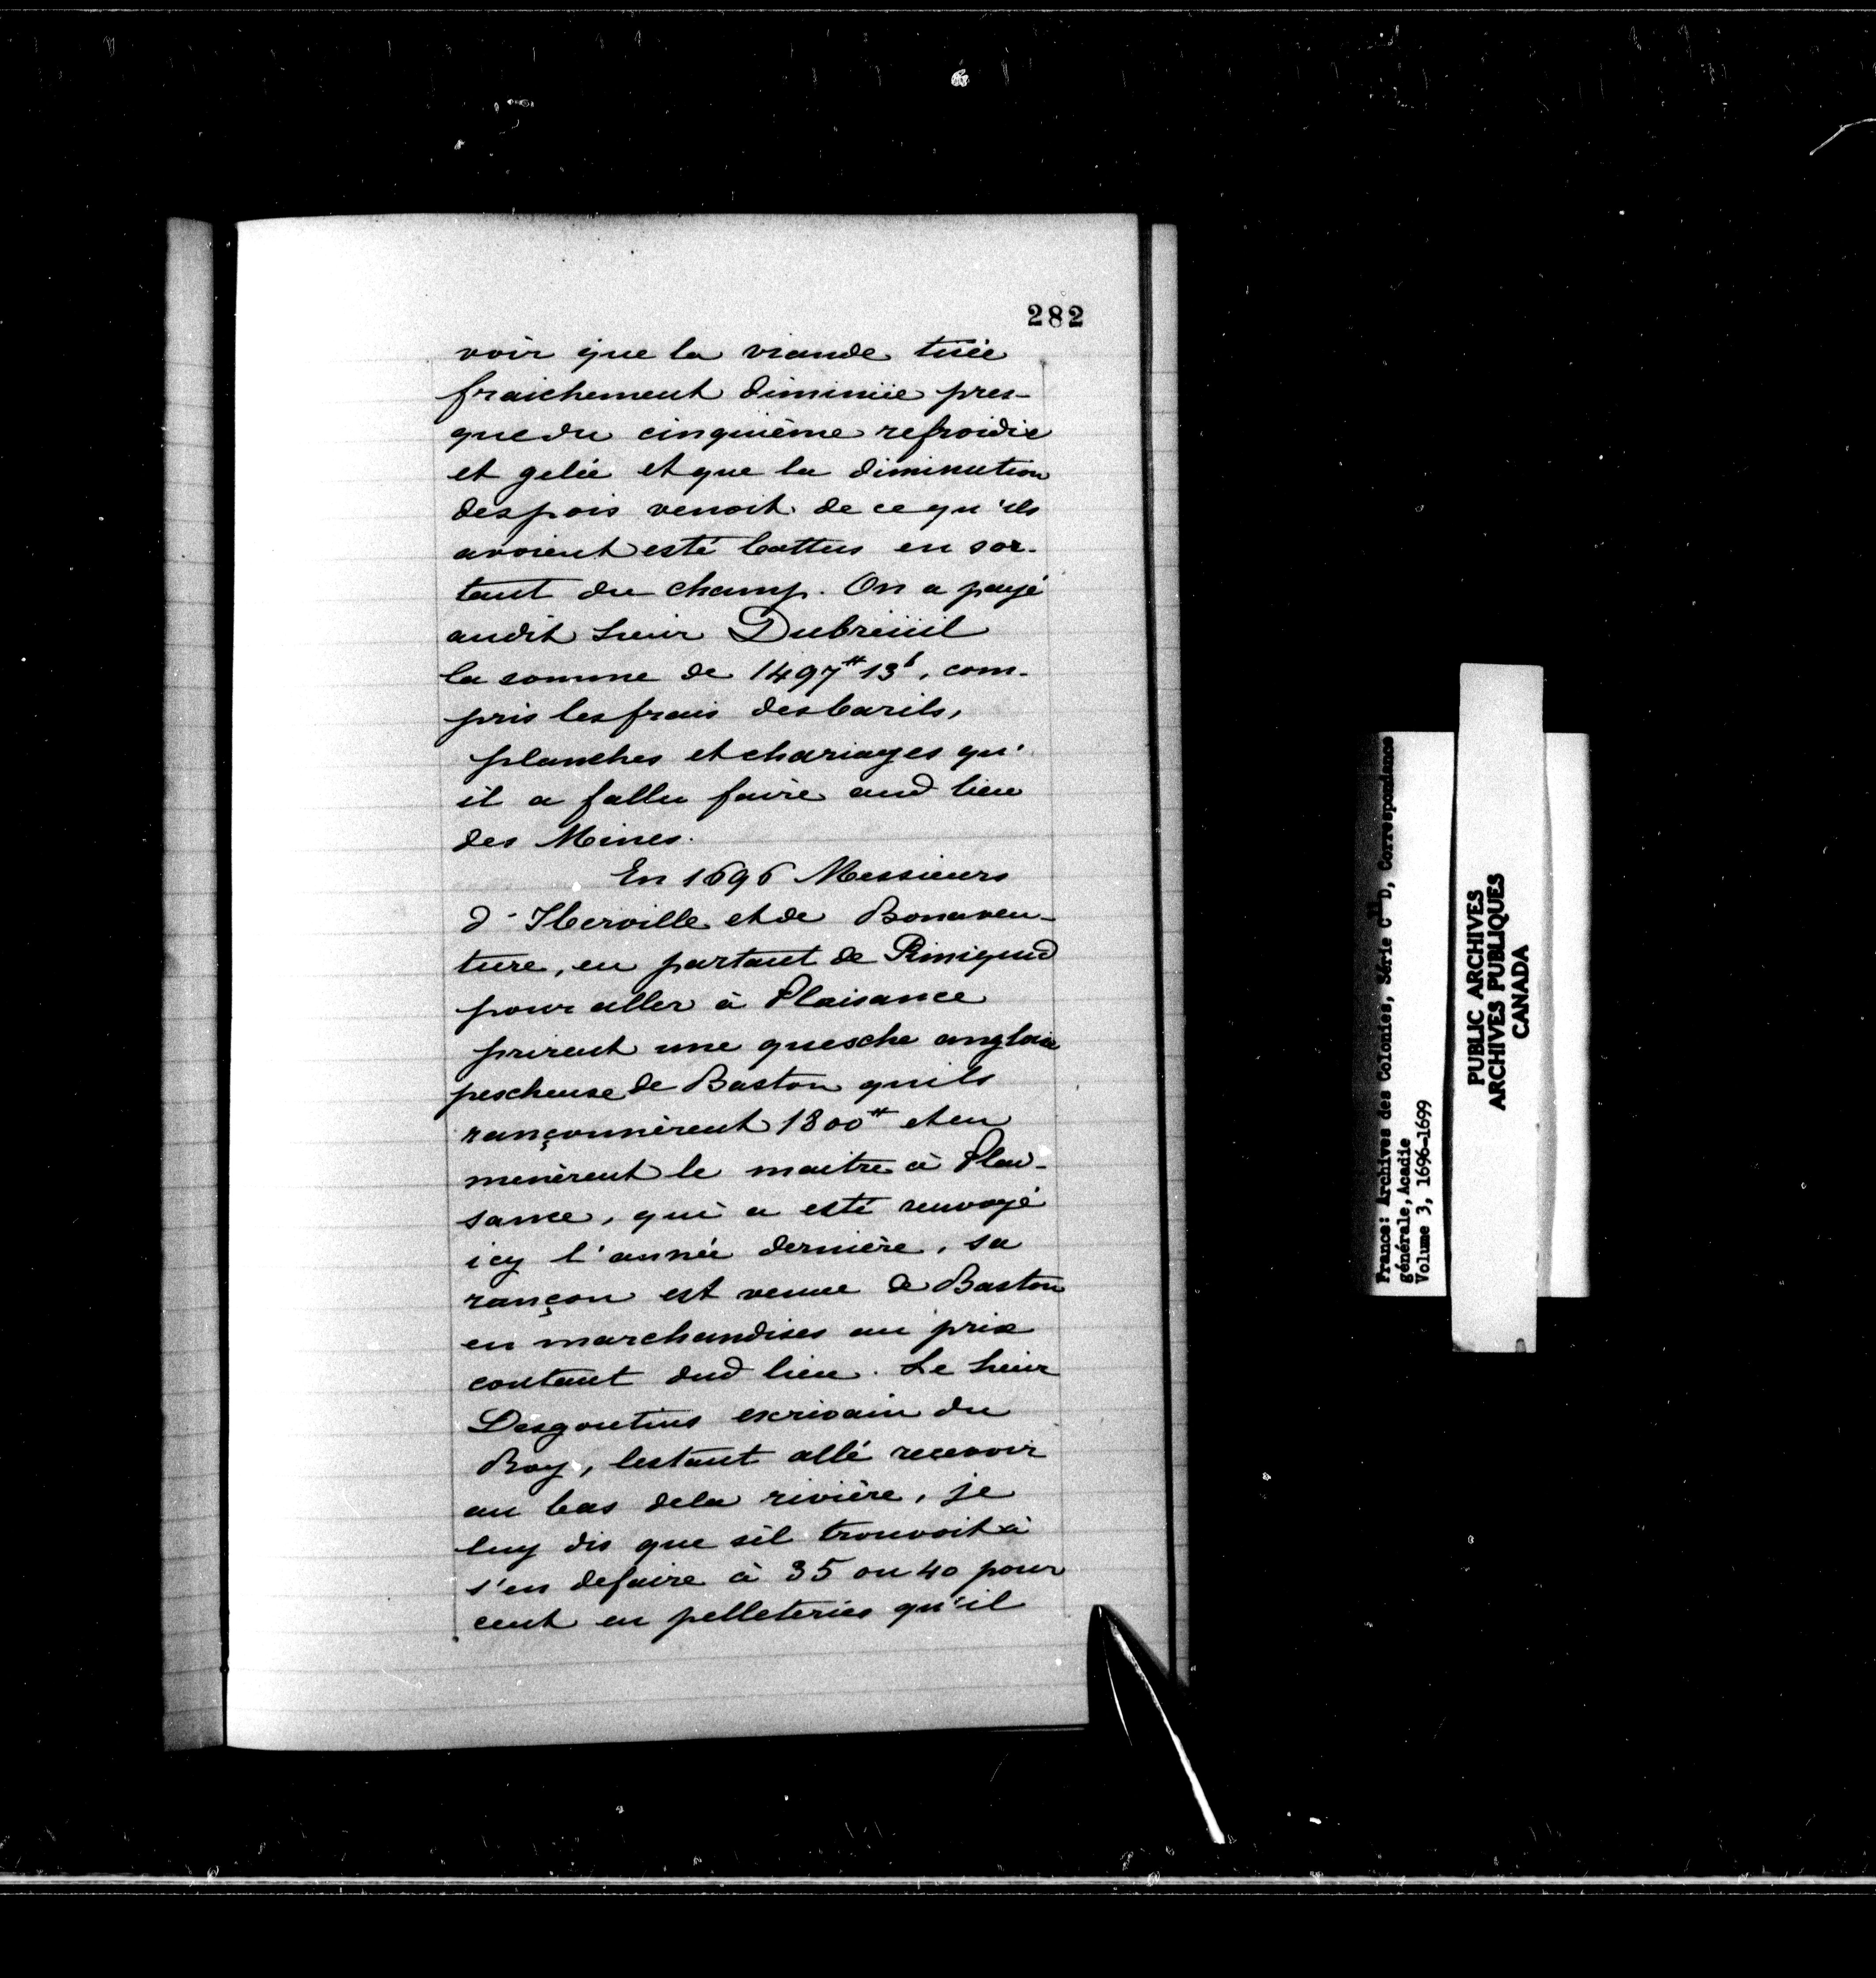 282
voir que la viande tuée
fraichement diminüe pres-
que du cinquième refroidie
et gelée et que la diminution
des pois venoit de ce qu'ils
avoient esté battus en sor-
tant du champ. On a payé
audit Sieur Dubreüil
la somme de 1497# 13s, com-
pris les frais des barils,
planches et chariages qu'
il a fallu faire aud lieu
des Mines.
En 1696 Messieurs
d'Iberville et de Bonaven-
ture, en partant de Pimiquid
pour aller à Plaisance
prirent une quesche anglaise
pescheuse de Baston quils
rançonnèrent 1800# et en
menèrent le maitre à Plai-
sance, qui a esté renvoyé
icy l'année dernière, sa
rançon est venue de Baston
en marchandises au prix
coutant dud lieu. Le Sieur
Desgoutins escrivain du
Roy, lestant allé recevoir
au bas de la rivière, je
luy dis que sil trouvoit à
s'en defaire à 35 ou 40 pour
cent en pelleteries qu'il
France: Archives des Colonies, Série C11D, Correspondance
générale, Acadie
Volume 3, 1696-1699
PUBLIC ARCHIVES
ARCHIVES PUBLIQUES
CANADA